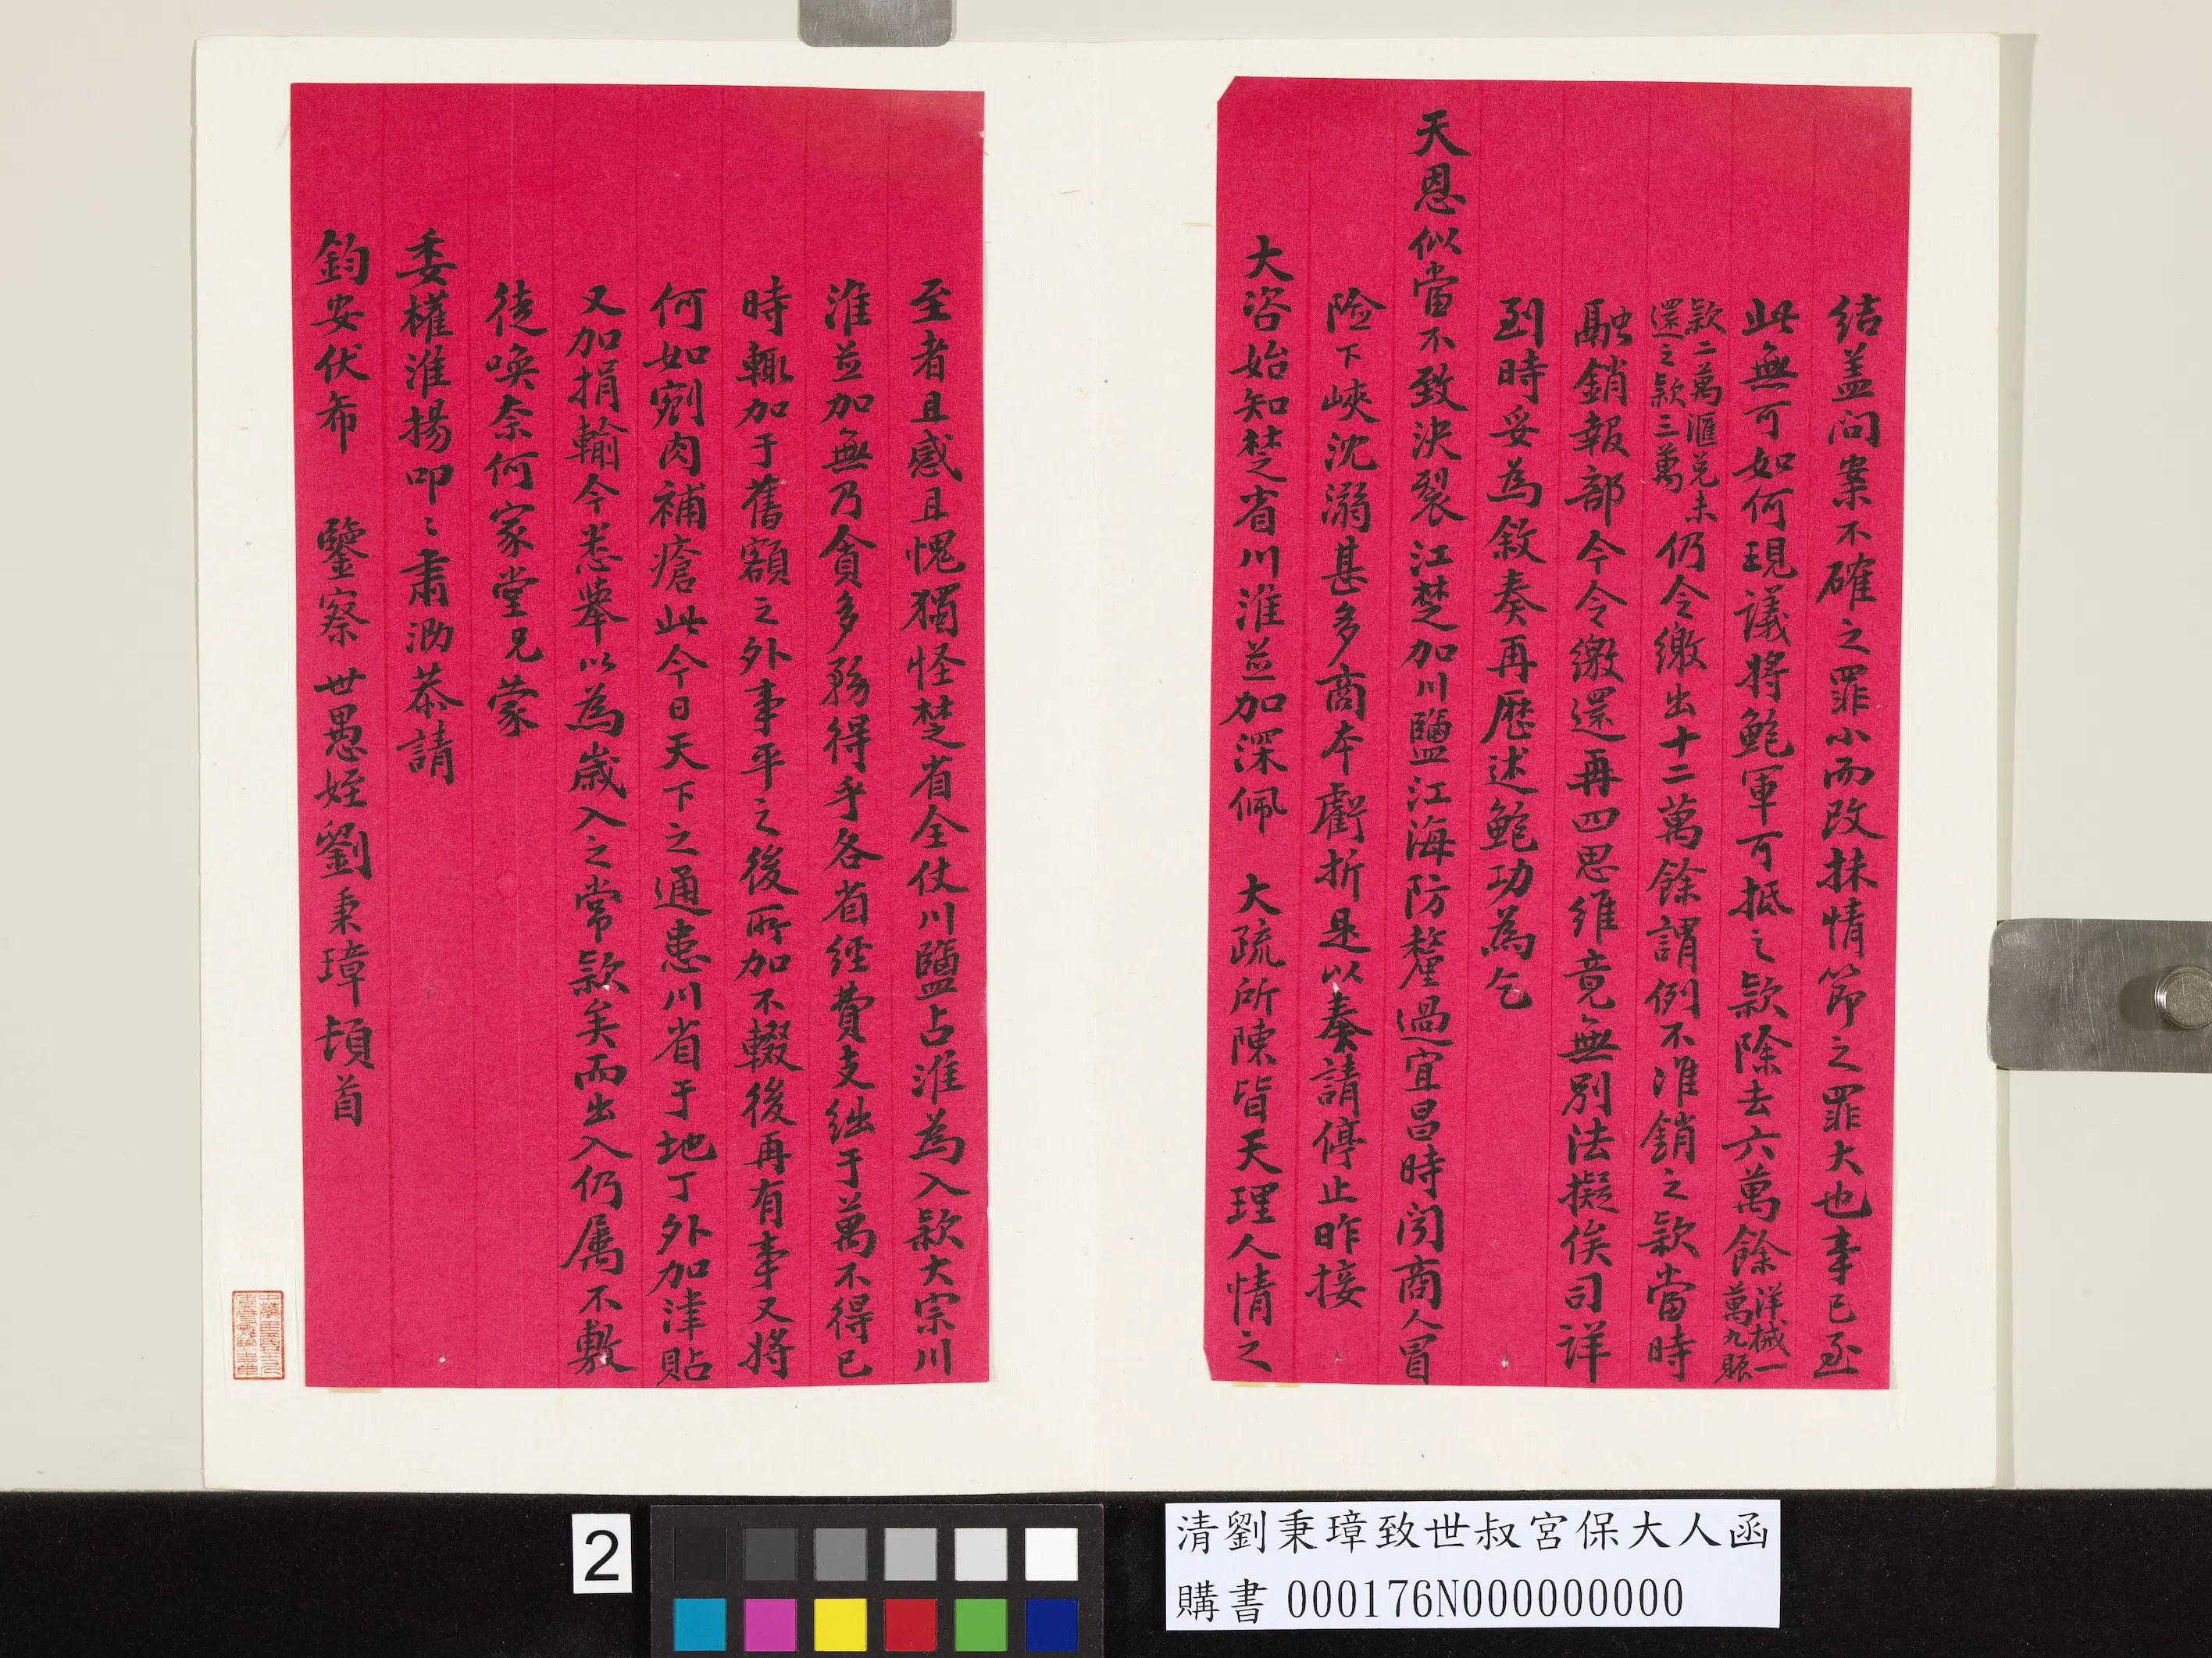 結盖问案不確之罪小而改抹情節之罪大也事已至
此無可如何現議将鮑軍可抵之款除去六萬餘洋械一萬九賬
款二萬滙兑未還之款三萬仍令繳出十二萬餘謂例不准銷之款當時
融銷報部今令繳還再四思維竟無别法擬俟司详
到時妥為敘奏再歷述鮑功為乞
天恩似當不致決裂江楚加川鹽江海防釐過宜昌時闻商人冒
险下峽沈溺甚多商本虧折是以奏請停止昨接
大咨始知楚省川淮並加深佩 大疏所陳皆天理人情之
至者且感且愧獨怪楚省全仗川鹽占淮為入款大宗川
淮並加無乃貪多務得乎各省經費支絀于萬不得已
時輒加于舊額之外事平之後所加不輟後再有事又将
何如剜肉補瘡此今日天下之通患川省于地丁外加津貼
又加捐輸今悉舉以為歲入之常款矣而出入仍属不敷
徒唤奈何家堂兄蒙
委權淮揚叩〻肅泐恭請
鈞安伏希 鑒察世愚姪劉秉璋頓首
2
清劉秉璋致世叔宮保大人函
購書 000176N000000000